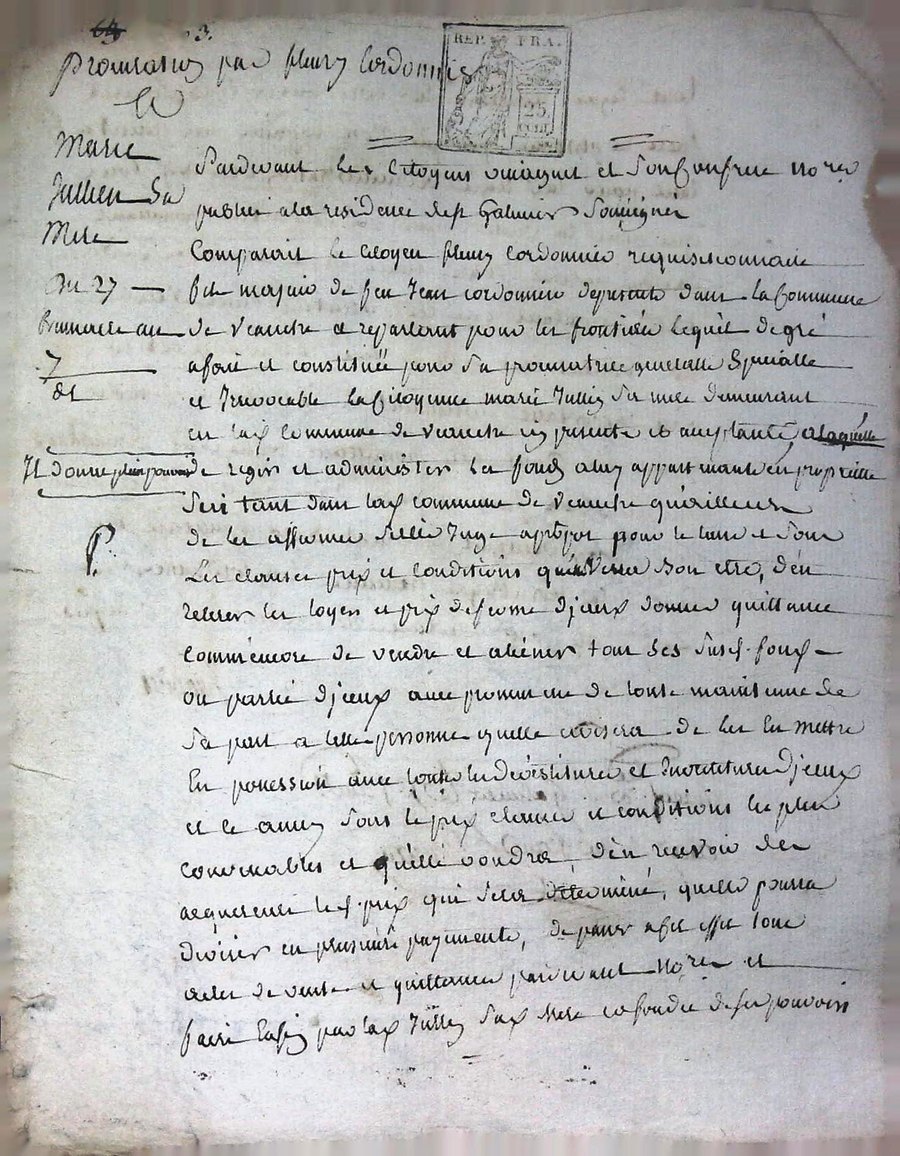 64 3.
procuration par fleury Cordonnier
a
REP. FRA.
25
Marie
Jullien Sa
Mere
Du 27
brumaire an
7
Pardevant les Citoyens et Son Confrere no.res
publics a la residence de st Galmier Soussignés
Comparait le Citoyen fleury Cordonnier requisitionnaire
fils majeur de feu Jean Cordonnier dans la Commune
de Veauche et repartant pour les frontieres lequel de gré
a fait et constitué pour Sa procuratrice generalle Specialle
et Irrevocable la Citoyenne marie Jullien Sa mere demeurant
en lad Commune de Veauche icy presente et acceptante a laquelle
Il donne plein pouvoir de regir et administrer les fonds a luy appartenants en proprietté
Scis tant dans lad commune de Veauche qu'ailleurs
de les affermer Selle Juge apropos pour le tems et Sous
Les clauses prix et conditions quelle Verra Bon etre, d'en
retirer les loyers et prix de ferme d'jceux donner quittance
comme encore de vendre et aliener tous Ses Susd. fonds
ou partie d'jceux avec promesse de toute maintenue de
Sa part a telle personne quelle avisera de les En mettre
En possession avec toutes les devestitures et Investitures d'jceux
et ce aussy Sous le prix clauses et conditions les plus
convenables et quelle voudra, d'en recevoir des
acquereurs led. prix qui Sera determiné, quelle pourra
diviser en plusieurs payements, de passer a cet effet tous
actes de vente et quittances pardevant no.res et
faire Enfin par lad Jullien Sad Mere de Ses pouvoirs